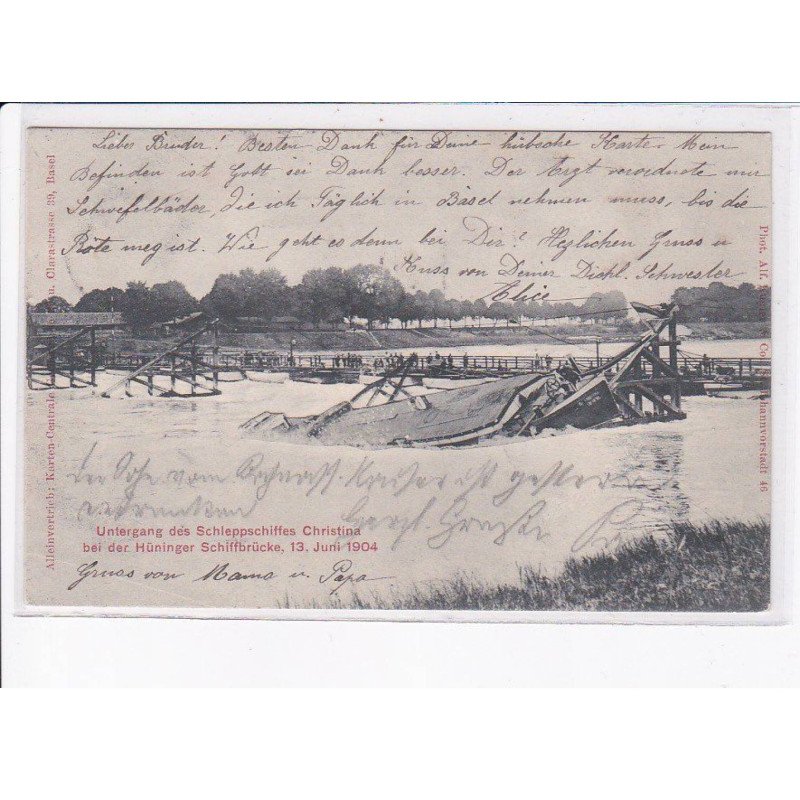 Liebes Bruder! Besten Dank für Deine hübsche Karte. Mein
Befinden ist Gott sei Dank besser. Der Arzt verordnete mir
Schwefelbäder, die ich Täglich in Basel nehmen muss, bis die
Röte weg ist. Wie geht es denn bei Dir? Herzlichen Gruss u
Kuss von Deiner Dichl. Schwester
Alice
Der vom Kaiser ist gestern
Untergang des Schleppschiffes Christina
bei der Hüninger Schiffbrücke, 13. Juni 1904
Gruss von Mama u. Papa
Alleinvertrieb: Karten-Centrale Clarastrasse 39, Basel
Phot. Alf. Co hannvorstadt 46